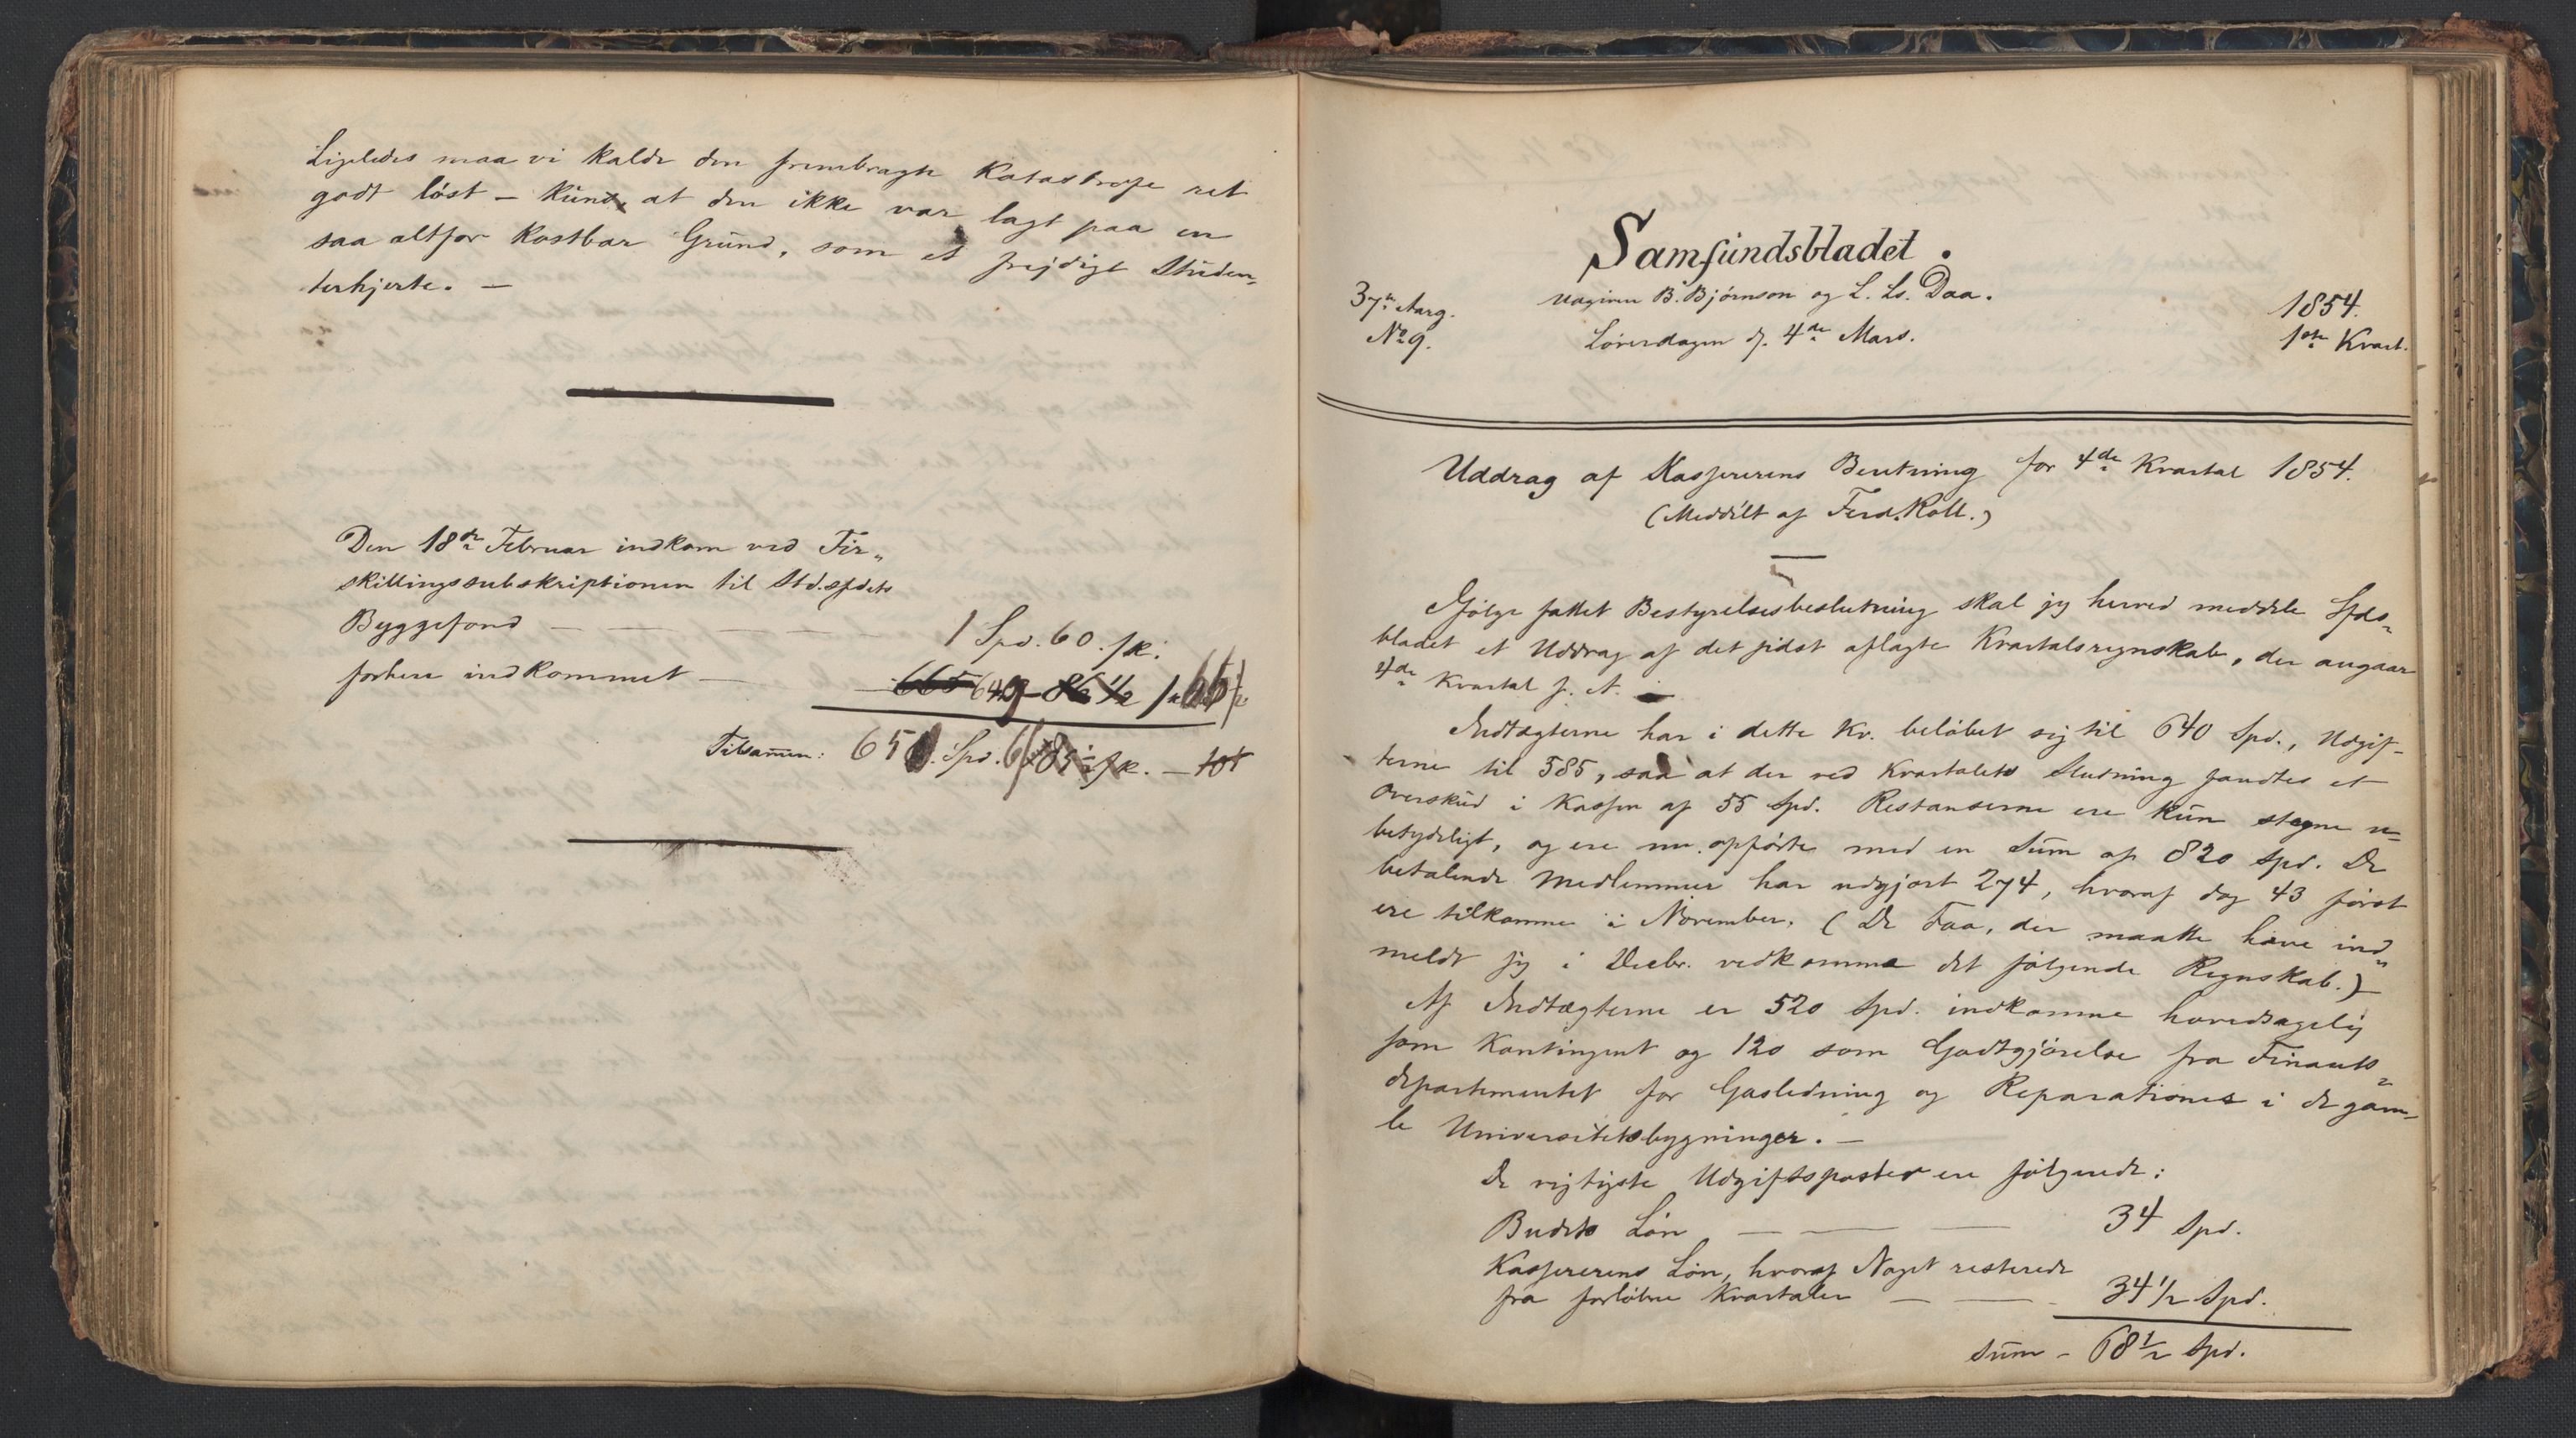 Ligeledes maa vi kalde den frembragte Katastrofe ret
godt løst – kun, at den ikke var lagt paa en
saa altfor kostbar Grund, som et frejdigt Studen„
terhjerte. —
Den 18de Februar indkom ved Fir„
skillingssubskriptionen til Std.sfdets
Byggefond — — — — 1 Spd. 60. sk:
forhen indkommet —
Tilsamen: 65 Spd.
Samfundsbladet.
37te Aarg. udgiven B. Bjørnson og L. Ls. Daa. 1854.
No 9. Løverdagen d. 4de Mars. 1ste Kvart.
Uddrag af Kassererens Beretning for 4de Kvartal 1854.
(Meddelt af Ferd. Roll.)
Ifølge fattet Bestyrelsesbeslutning skal jeg herved meddele Sfds„
bladet et Uddrag af det sidst aflagte Kvartalsregnskab, der angaar
4de Kvartal f. A.
Indtægterne har i dette Kv. beløbet sig til 640 Spd., Udgif-
terne til 585, saa at der ved Kvartalets Slutning fandtes et
Overskud i Kassen af 55 Spd. Restanserne ere kun stegne u=
betydeligt, og ere nu opførte med en Sum af 820 Spd. De
betalende Medlemmer har udgjort 274, hvoraf dog 43 først
ere tilkomne i November. (De Faa, der maatte have ind„
meldt sig i Decbr. vedkomme det følgende Regnskab.)
Af Indtægterne er 520 Spd. indkomne hovedsagelig
som Kontingent og 120 som Godtgjørelse fra Finants„
departementet for Gasledning og Reparationer i de gam-
le Universitetsbygninger. —
De vigtigste Udgiftsposter ere følgende:
Budets Løn — — — 34 Spd.
Kassererens Løn, hvoraf Noget resterede
fra forløbne Kvartaler — — 34 1/2 Spd.
Sum – 68 1/2 Spd.